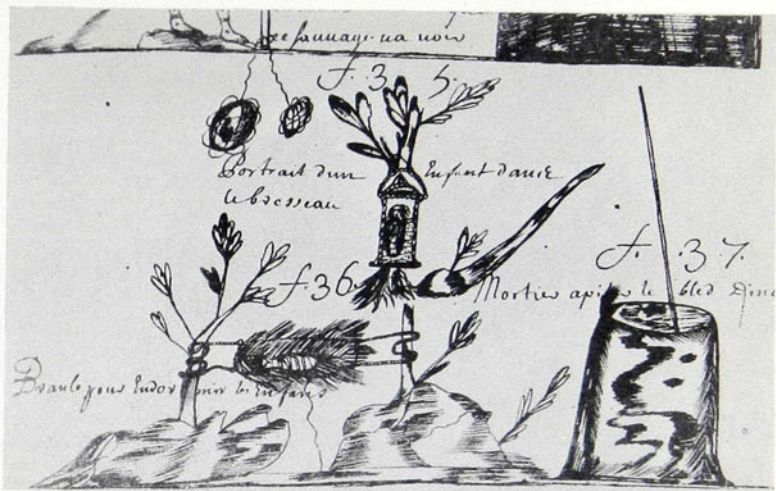 sauuage na noir
f. 35.
Portrait dun Enfant dans
le bresseau
f. 36
f. 37.
Mortier a piler le bled dinde
Branle pour Endormir les Enfans